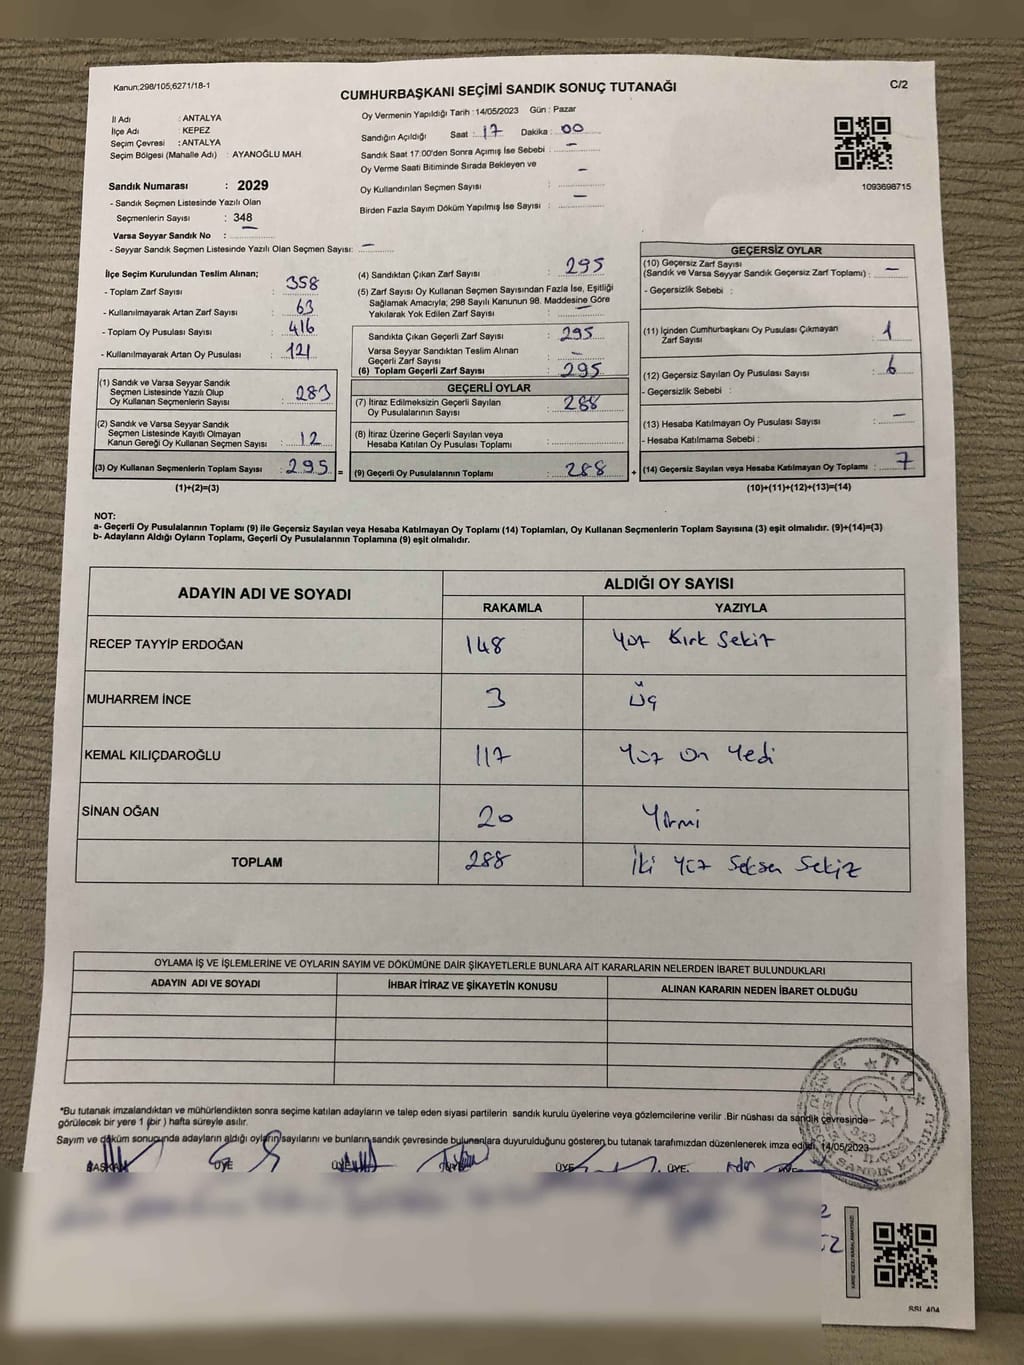 Kanun;298/105;6271/18-1
CUMHURBAŞKANI SEÇİMİ SANDIK SONUÇ TUTANAĞI
C/2
İl Adı : ANTALYA
İlçe Adı : KEPEZ
Seçim Çevresi : ANTALYA
Seçim Bölgesi (Mahalle Adı) : AYANOĞLU MAH.
Sandık Numarası : 2029
- Sandık Seçmen Listesinde Yazılı Olan
Seçmenlerin Sayısı : 348
Varsa Seyyar Sandık No : —
- Seyyar Sandık Seçmen Listesinde Yazılı Olan Seçmen Sayısı: —
Oy Vermenin Yapıldığı Tarih : 14/05/2023 Gün : Pazar
Sandığın Açıldığı Saat : 17 Dakika : 00
Sandık Saat 17:00'den Sonra Açımış İse Sebebi : —
Oy Verme Saati Bitiminde Sırada Bekleyen ve
Oy Kullandırılan Seçmen Sayısı : —
Birden Fazla Sayım Döküm Yapılmış İse Sayısı : —
1093698715
İlçe Seçim Kurulundan Teslim Alınan;
- Toplam Zarf Sayısı : 358
- Kullanılmayarak Artan Zarf Sayısı : 63
- Toplam Oy Pusulası Sayısı : 416
- Kullanılmayarak Artan Oy Pusulası : 121
(1) Sandık ve Varsa Seyyar Sandık
Seçmen Listesinde Yazılı Olup
Oy Kullanan Seçmenlerin Sayısı : 283
(2) Sandık ve Varsa Seyyar Sandık
Seçmen Listesinde Kayıtlı Olmayan
Kanun Gereği Oy Kullanan Seçmen Sayısı : 12
(3) Oy Kullanan Seçmenlerin Toplam Sayısı : 295 =
(1)+(2)=(3)
(4) Sandıktan Çıkan Zarf Sayısı : 295
(5) Zarf Sayısı Oy Kullanan Seçmen Sayısından Fazla İse, Eşitliği
Sağlamak Amacıyla; 298 Sayılı Kanunun 98. Maddesine Göre
Yakılarak Yok Edilen Zarf Sayısı : —
Sandıkta Çıkan Geçerli Zarf Sayısı : 295
Varsa Seyyar Sandıktan Teslim Alınan
Geçerli Zarf Sayısı : —
(6) Toplam Geçerli Zarf Sayısı : 295
GEÇERLİ OYLAR
(7) İtiraz Edilmeksizin Geçerli Sayılan
Oy Pusulalarının Sayısı : 288
(8) İtiraz Üzerine Geçerli Sayılan veya
Hesaba Katılan Oy Pusulası Toplamı :
(9) Geçerli Oy Pusulalarının Toplamı : 288 +
GEÇERSİZ OYLAR
(10) Geçersiz Zarf Sayısı
(Sandık ve Varsa Seyyar Sandık Geçersiz Zarf Toplamı) : —
- Geçersizlik Sebebi :
(11) İçinden Cumhurbaşkanı Oy Pusulası Çıkmayan
Zarf Sayısı : 1
(12) Geçersiz Sayılan Oy Pusulası Sayısı : 6
- Geçersizlik Sebebi :
(13) Hesaba Katılmayan Oy Pusulası Sayısı : —
- Hesaba Katılmama Sebebi :
(14) Geçersiz Sayılan veya Hesaba Katılmayan Oy Toplamı : 7
(10)+(11)+(12)+(13)=(14)
NOT:
a- Geçerli Oy Pusulalarının Toplamı (9) ile Geçersiz Sayılan veya Hesaba Katılmayan Oy Toplamı (14) Toplamları, Oy Kullanan Seçmenlerin Toplam Sayısına (3) eşit olmalıdır. (9)+(14)=(3)
b- Adayların Aldığı Oyların Toplamı, Geçerli Oy Pusulalarının Toplamına (9) eşit olmalıdır.
ADAYIN ADI VE SOYADI
ALDIĞI OY SAYISI
RAKAMLA YAZIYLA
RECEP TAYYİP ERDOĞAN 148 Yüz Kırk Sekiz
MUHARREM İNCE 3 Üç
KEMAL KILIÇDAROĞLU 117 Yüz On Yedi
SİNAN OĞAN 20 Yirmi
TOPLAM 288 İki Yüz Seksen Sekiz
OYLAMA İŞ VE İŞLEMLERİNE VE OYLARIN SAYIM VE DÖKÜMÜNE DAİR ŞİKAYETLERLE BUNLARA AİT KARARLARIN NELERDEN İBARET BULUNDUKLARI
ADAYIN ADI VE SOYADI İHBAR İTİRAZ VE ŞİKAYETİN KONUSU ALINAN KARARIN NEDEN İBARET OLDUĞU
*Bu tutanak imzalandıktan ve mühürlendikten sonra seçime katılan adayların ve talep eden siyasi partilerin sandık kurulu üyelerine veya gözlemcilerine verilir .Bir nüshası da sandık çevresinde
görülecek bir yere 1 (bir) hafta süreyle asılır.
Sayım ve döküm sonucunda adayların aldığı oyların sayılarını ve bunların sandık çevresinde bulunanlara duyurulduğunu gösteren bu tutanak tarafımızdan düzenlenerek imza edildi. 14/05/2023
BAŞKAN ÜYE ÜYE ÜYE ÜYE
T.C.
SANDIK KURULU